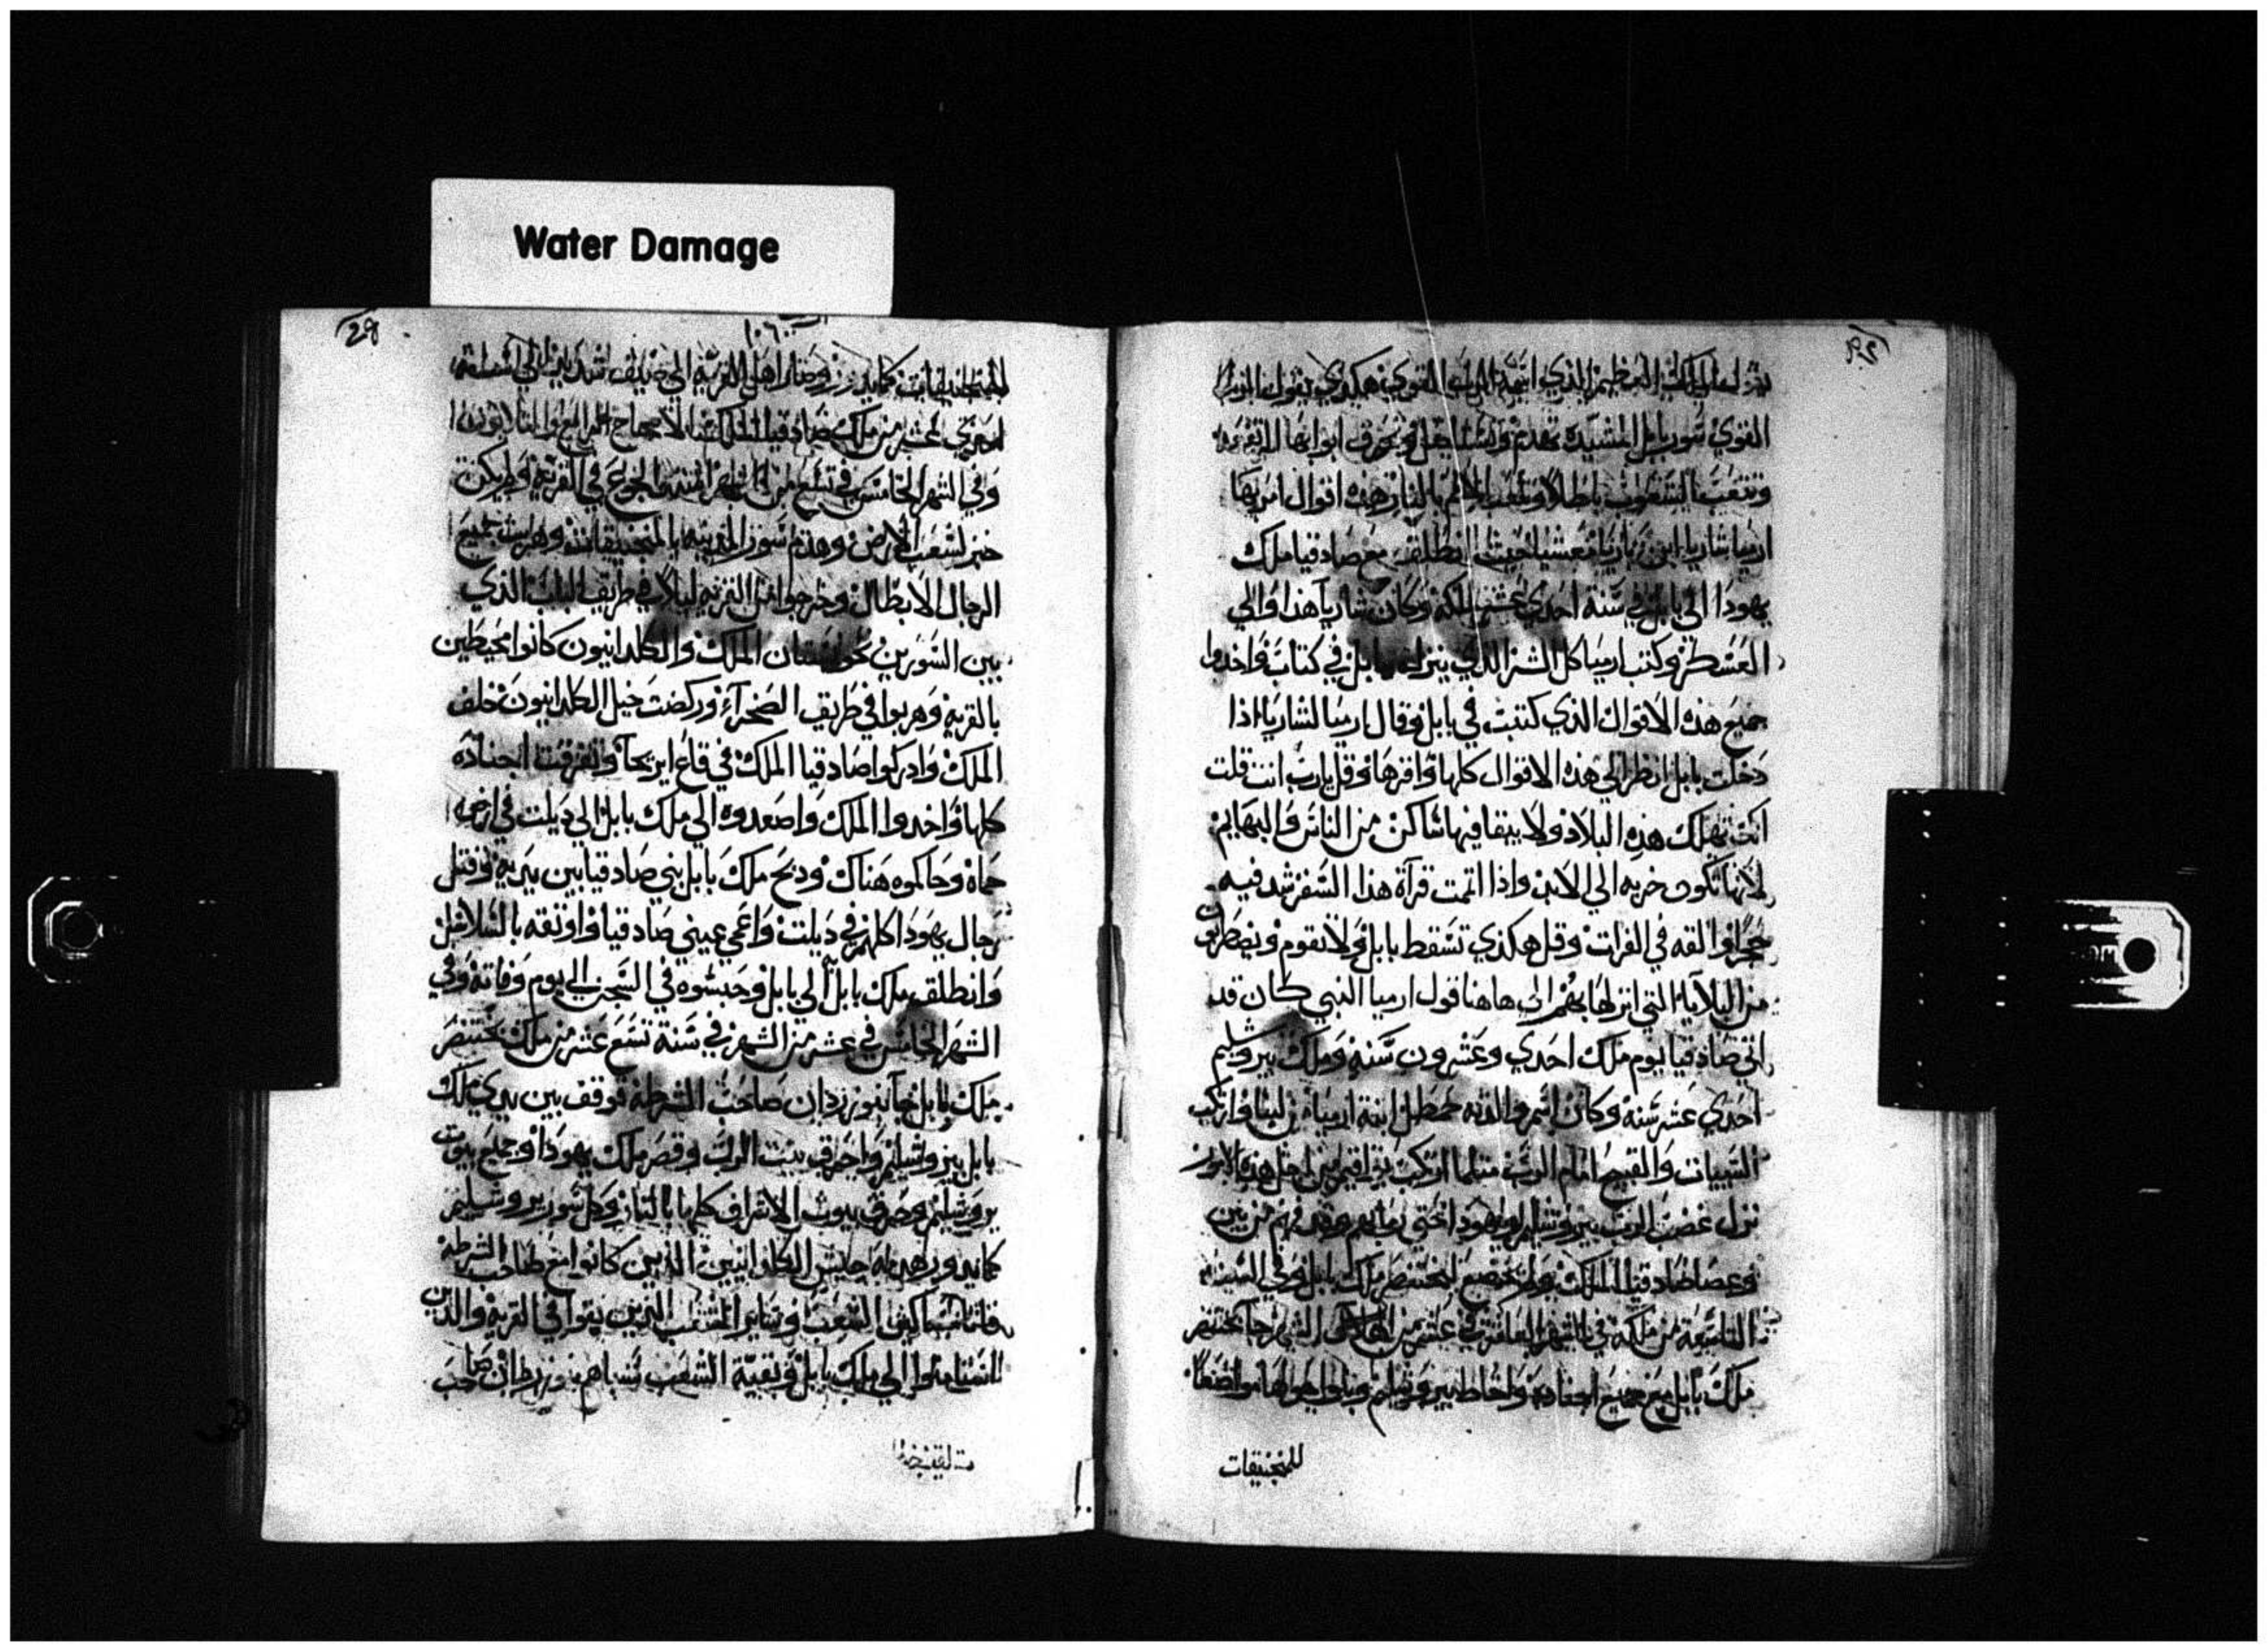 Water Damage
28
القوي سور بابل المشيده تهدم وتستاصل وتحرق ابوابها المرتفعه
وتتعب الشعوب باطلا وتتعب الامم بالنار هذه اقوال امر بها
ارميا شاريا ابن ناريا معشيا حيث انطلق مع صادقيا ملك
يهودا الي بابل في سنة احدي عشر لملكه وكان شاريا هذا والي
العسكر وكتب ارميا كل الشر الذي ينزل ببابل في كتاب واخدوا
جميع هذه الاقوال الذي كتبت في بابل وقال ارميا لشاريا اذا
دخلت بابل انظر الي هذه الاقوال كلها واقرها وقل يارب انت قلت
انك تهلك هذه البلاد ولا يبقا فيها ساكن من الناس والبهايم
لانها تكون خربه الي الابد واذا اتممت قرآة هذا السفر شد فيه
حجرًا والقه في الفرات وقل هكذي تسقط بابل ولا تقوم ويضطربون
من البلايا التي انزلها بهم الي هاهنا قول ارميا النبي كان قد
اتي صادقيا يوم ملك احدي وعشرون سنة وملك بيروشليم
احدي عشر سنه وكان اسم والدته حمطل ابنة ارميا من لبنا وارتكب
السييات والقبيح امام الرب مثلما ارتكب يواقيم من اجل هذه الامور
نزل غضب الرب بيروشليم ويهودا حتي رماهم من بين
وعصا صادقيا الملك ولم يخضع لبختنصر ملك بابل وفي السنه
التاسعة من ملكه في الشهر العاشر في عشر من الشهر جا بختنصر
ملك بابل مع جميع اجناده واحاط بيروشليم وبنوا حولها مواضعا
للمنجنيقات
للمنجنيقات كما يدور وصار اهل القرية في ضيق شديد الي
احدي عشر من ملك صادقيا الملك
وفي الشهر الخامس في تسع من الشهر اشتد الجوع في القرية ولم يكن
خبز لشعب الارض وهدم سور المدينه بالمنجنيقات وهرب جميع
الرجال الابطال وخرجوا من القريه ليلا في طريق الباب الذي
بين السورين نحو بستان الملك والكلدانيون كانوا محيطين
بالقريه وهربوا في طريق الصحرآء وركضت خيل الكلدانيون خلف
الملك وادركوا صادقيا الملك في قاع ايريحآ وتفرقت اجناده
كلها واخدوا الملك واصعدوه الي ملك بابل الي ديلت في ارض
حماة وحاكموه هناك ودبح ملك بابل بني صادقيا بين يديه وقتل
رجال يهودا كلهم في ديلت واعمي عيني صادقيا واوثقه بالسلاسل
وانطلق ملك بابل الي بابل وحبسوه في السجن الي يوم وفاته وفي
الشهر الخامس في عشر من الشهر في سنة تسع عشر من ملك بختنصر
ملك بابل جآ نبوزردان صاحب الشرطه فوقف بين يدي ملك
بابل بيروشليم واحرق بيت الرب وقصر ملك يهودا وجميع بيوت
يروشليم وحرق بيوت الاشراف كلها بالنار وكل سور يروشليم
كما يدور هدمه جيش الكلدانيين الذين كانوا مع صاحب الشرطه
فاما مساكين الشعب وساير الشعب الذين بقوا في القريه والذين
استامنوا الي ملك بابل وبقية الشعب سباهم نبوزردان صاحب